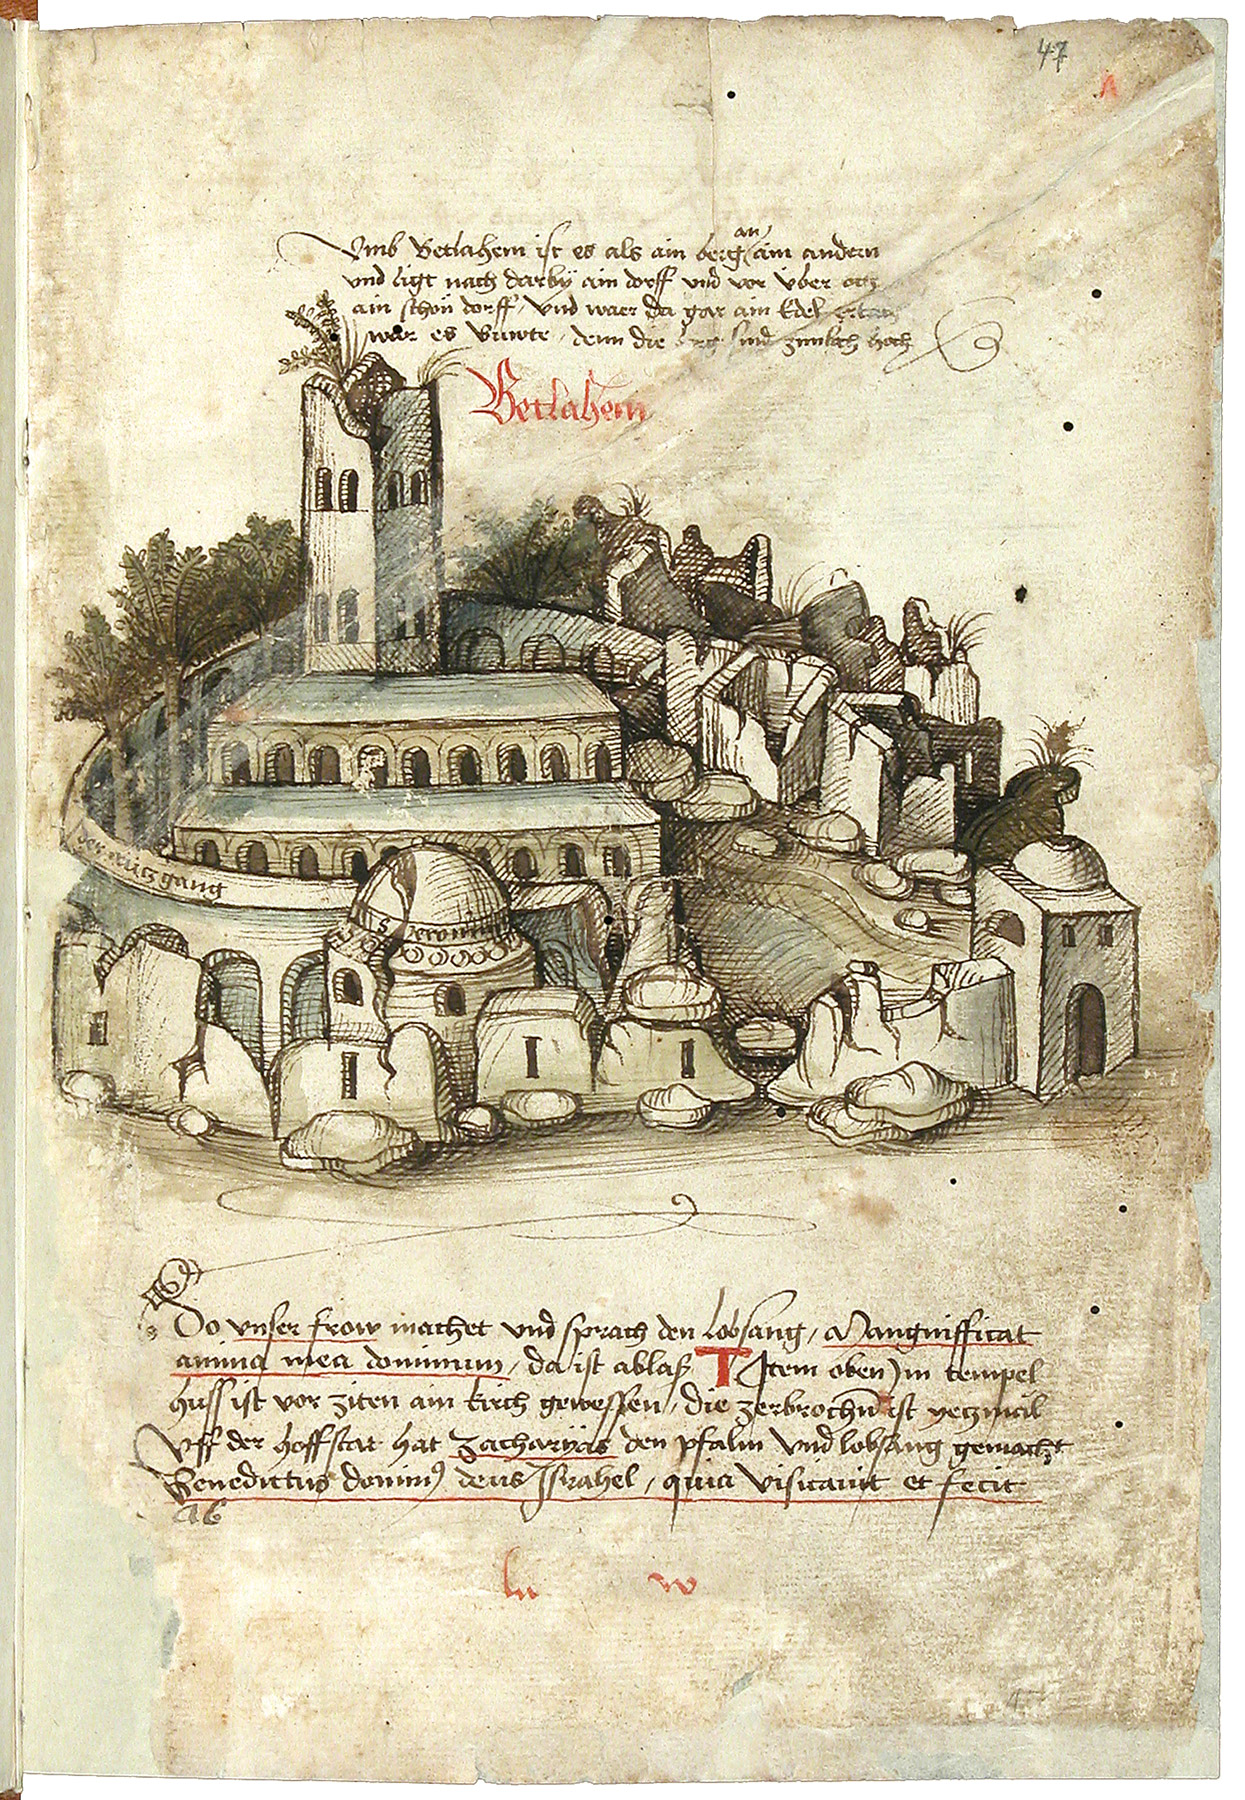 47
A
Vmb Betlahem ist es als ain berg an ain andern
vnd ligt nach darby ain dorff vnd vor vber
ain schön dorff, vnd waer da gar ain Edel
wär es buwte, denn die berg sind zimlich hoch
Betlahem
der crütz gang
S Jeronim
Do vnser frow machet vnd sprach den lobsang, Mangnifficat
anima mea dominum, da ist ablaß T Item oben Jm tempel
huss ist vor ziten ain kirch gewessen, die zerbrochñ ist yeczmäl
Vff der hoffstat hat Zacharyas den psalm vnd lobsang gemacht
Benedictus dominꝰ deus Jsrahel, quia visitauit et fecit